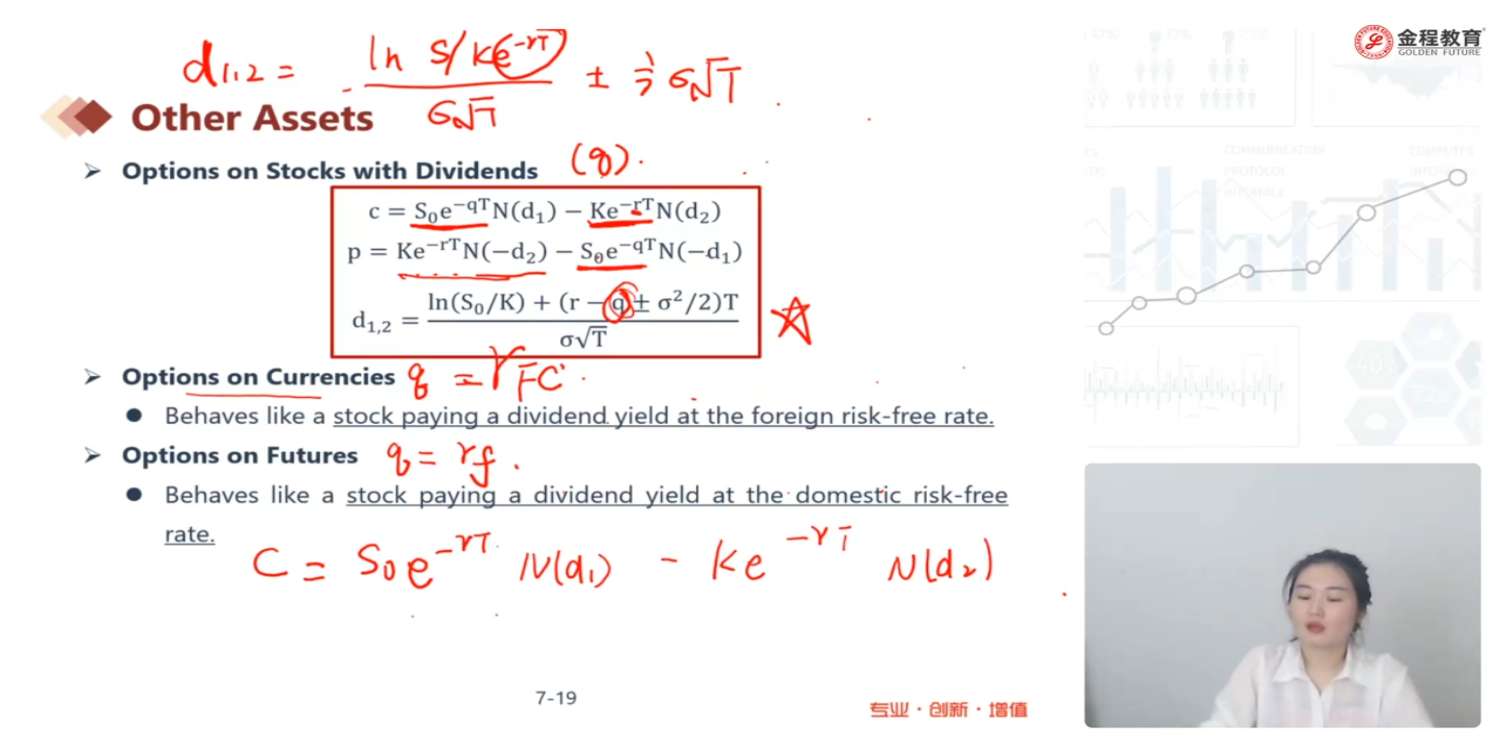 d₁,₂ = ln S/Ke^(-rT) / σ√T ± 1/2 σ√T
金程教育
GOLDEN FUTURE
Other Assets
Options on Stocks with Dividends (q).
c = S₀e^(−qT)N(d₁) − Ke^(−rT)N(d₂)
p = Ke^(−rT)N(−d₂) − S₀e^(−qT)N(−d₁)
d₁,₂ = ln(S₀/K) + (r − q ± σ²/2)T / σ√T
Options on Currencies q = r FC.
Behaves like a stock paying a dividend yield at the foreign risk-free rate.
Options on Futures q = rf.
Behaves like a stock paying a dividend yield at the domestic risk-free
rate.
C = S₀e^(-rT) N(d₁) - Ke^(-rT) N(d₂)
7-19
专业·创新·增值